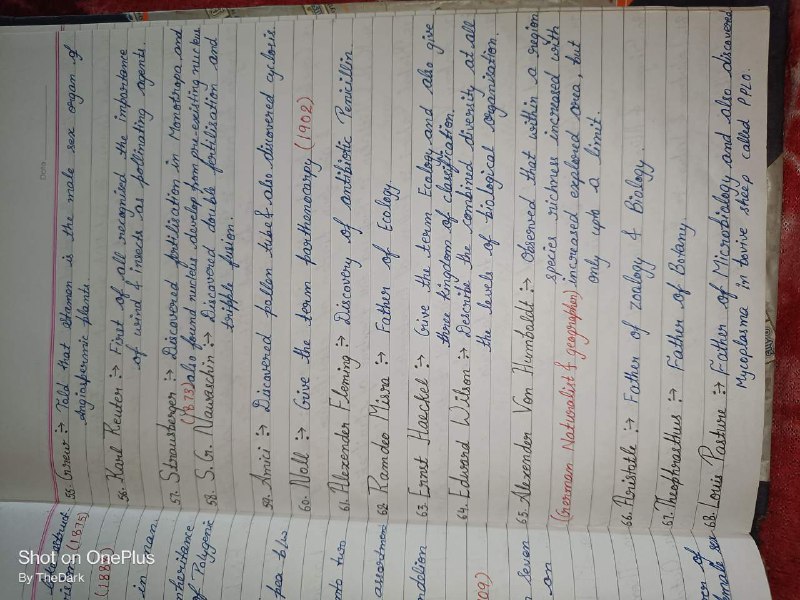 Date
55. Grew :→ Told that stamen is the male sex organ of
angiospermic plants.
56. Karl Reuter :→ First of all recognised the importance
of wind & insects as pollinating agents.
57. Strausberger :→ Discovered fertilisation in Monotropa and
(1873) also found nucleus develop from pre-existing nucleus
58. S. G. Nawaschin :→ Discovered double fertilisation and
tripple fusion.
59. Amici :→ Discovered pollen tube & also discovered cyclosis
60. Noll :→ Give the term parthenocarpy (1902)
61. Alexender Fleming :→ Discovery of antibiotic Penicillin
62. Ramdeo Misra :→ Father of Ecology.
63. Ernst Haeckel :→ Give the term Ecology and also give
three kingdom of classification.
64. Edward Wilson :→ Describe the combined diversity at all
the levels of biological organisation.
65. Alexender Von Humboldt :→ Observed that within a region
species richness increased with
(German Naturalist & geographer) increased explored area, but
only upto a limit.
66. Aristotle :→ Father of zoology & Biology.
67. Theophrasthus :→ Father of Botany.
68. Louis Pasture :→ Father of Microbiology and also discovered
Mycoplasma in bovive sheep called PPLO.
(1875)
in man
inheritance
of Polygenic
pea tabs
into two
assortment
seven
on
Shot on OnePlus
By TheDark